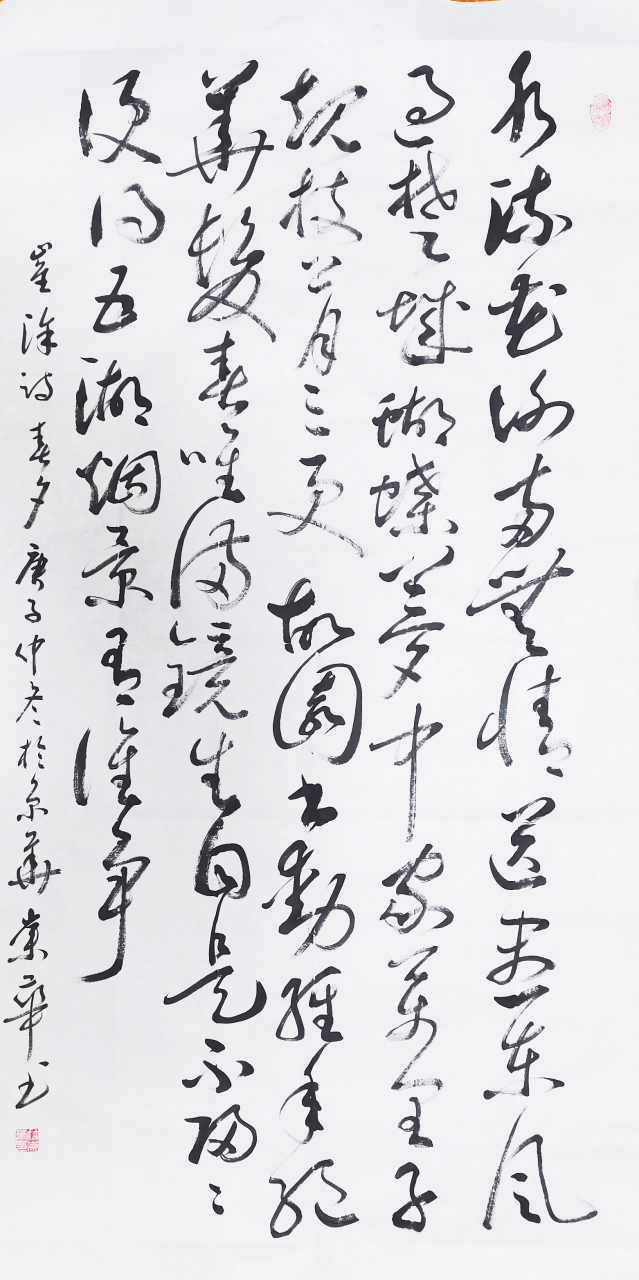 水流花謝兩無情送盡東風
過楚城蝴蝶夢中家萬里子
規枝上月三更故園書動經年絕
華髮春唯滿鏡生自是不歸々
便得五湖烟景有誰争
崔涂詩春夕庚子仲冬於京華華书